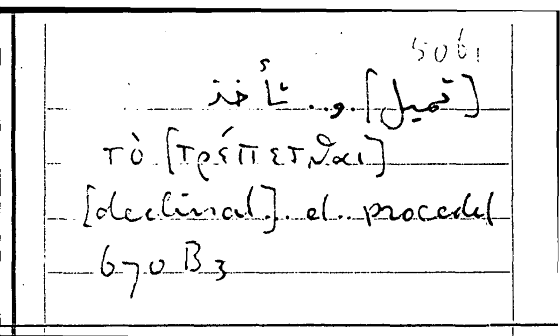 506,
[تميل] و.. تأخذ
τὸ [τρέπεσθαι]
[declinat] et procedit
670 B3